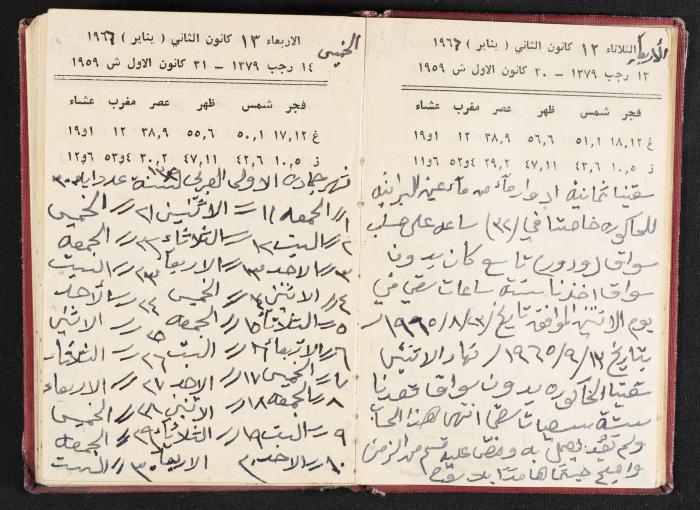 الأربعاء الثلاثاء ١٢ كانون الثاني ( يناير ) ١٩٦٦
١٣ رجب ١٣٧٩ – ٣٠ كانون الاول ش ١٩٥٩
فجر شمس ظهر عصر مغرب عشاء
غ ١٨,١٢ ٥١,١ ٥٦,٦ ٣٨,٩ ١٢ ١و١٩
ز ١٠,٥ ٤٣,٦ ٤٧,١١ ٢٩,٢ ٤و٥٣ ٦و١١
سقينا ثمانية ادوار ماء من ماء عين البرانيه
للحاكوره خاصتنا في (٣٢) ساعه على حساب
سواق (ودور) تاسع كان بدون
سواق اخذنا ستة ساعات سقي في
يوم الاثنين الموافق تاريخ ٢٣/٨/١٩٦٥/
بتاريخ ١٣/٩/١٩٦٥/ نهار الاثنين
سقينا الحاكوره بدون سواق قعدنا
ستة ساعات سقي انتهى هذا الحساب
ولم نعد نعمل به ومضى عليه قسم من الزمن
واصبح
الخميس الاربعاء ١٣ كانون الثاني ( يناير ) ١٩٦٦
١٤ رجب ١٣٧٩ – ٣١ كانون الاول ش ١٩٥٩
فجر شمس ظهر عصر مغرب عشاء
غ ١٧,١٢ ٥٠,١ ٥٥,٦ ٣٨,٩ ١٢ ١و١٩
ز ١٠,٥ ٤٢,٦ ٤٧,١١ ٣٠,٢ ٤و٥٣ ٦و١٢
شهر جماده الاولى العربي لسنة عدد ايامه ٣٠
١// الجمعه ١١ // الاثنين ٢١ // الخميس
٢// السبت ١٢ // الثلاثاء ٢٢ // الجمعه
٣// الاحد ١٣ // الاربعاء ٢٣ // السبت
٤// الاثنين ١٤ // الخميس ٢٤ // الأحد
٥// الثلاثاء ١٥ // الجمعه ٢٥ // الاثنين
٦// الاربعاء ١٦ // السبت ٢٦ // الثلاثاء
٧// الخميس ١٧ // الاحد ٢٧ // الاربعاء
٨// الجمعه ١٨ // الاثنين ٢٨ // الخميس
٩// السبت ١٩ // الثلاثاء ٢٩ // الجمعه
١٠// الاحد ٢٠ الاربعاء ٣٠ // السبت